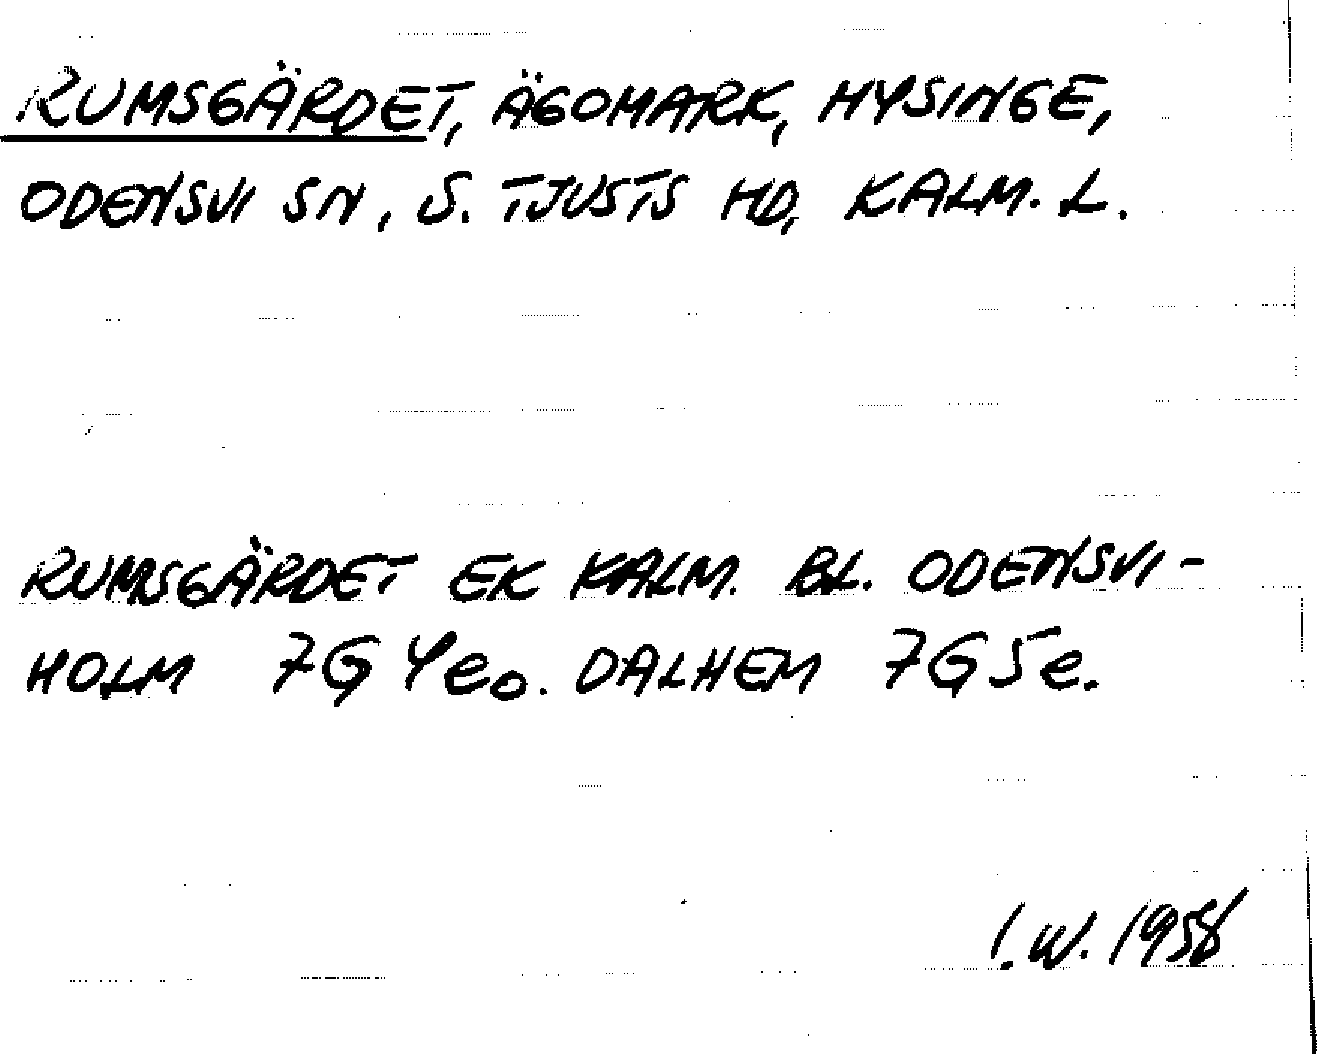 RUMSGÄRDET, ÄGOMARK, HYSINGE,
ODENSVI SN, S. TJUSTS HD, KALM. L.
RUMSGÄRDET EK KALM. BL. ODENSVI-
HOLM 7G 4e0. DALHEM 7G5e.
I.W. 1958